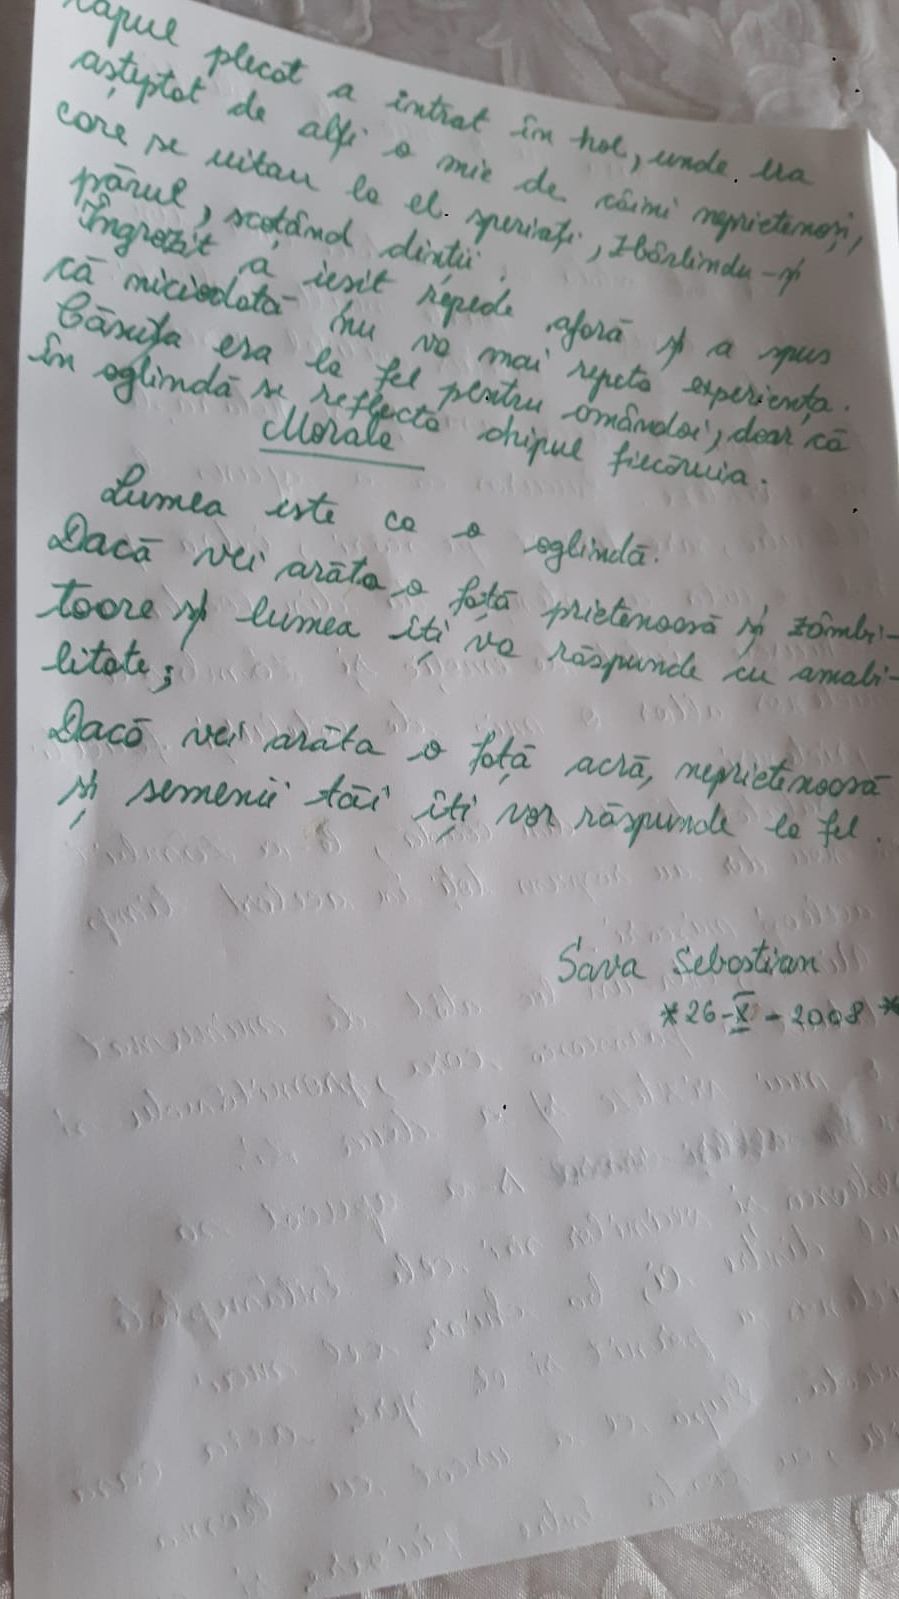 capul plecat a intrat în hol, unde era
așteptat de alți o mie de câini neprietenoși,
care se uitau la el speriați, zbârlindu-și
părul, scoțând dinții.
Îngrozit a iesit repede afară și a spus
că niciodată nu va mai repeta experiența.
Căsuța era la fel pentru amândoi, doar că
în oglindă se reflecta chipul fiecăruia.
Morala
Lumea este ca o oglindă.
Dacă vei arăta o față prietenoasă și zâmbi-
toare și lumea îți va răspunde cu amabi-
litate;
Dacă vei arăta o față acră, neprietenoasă
și semenii tăi îți vor răspunde la fel.
Sava Sebastian
*26-X-2008*